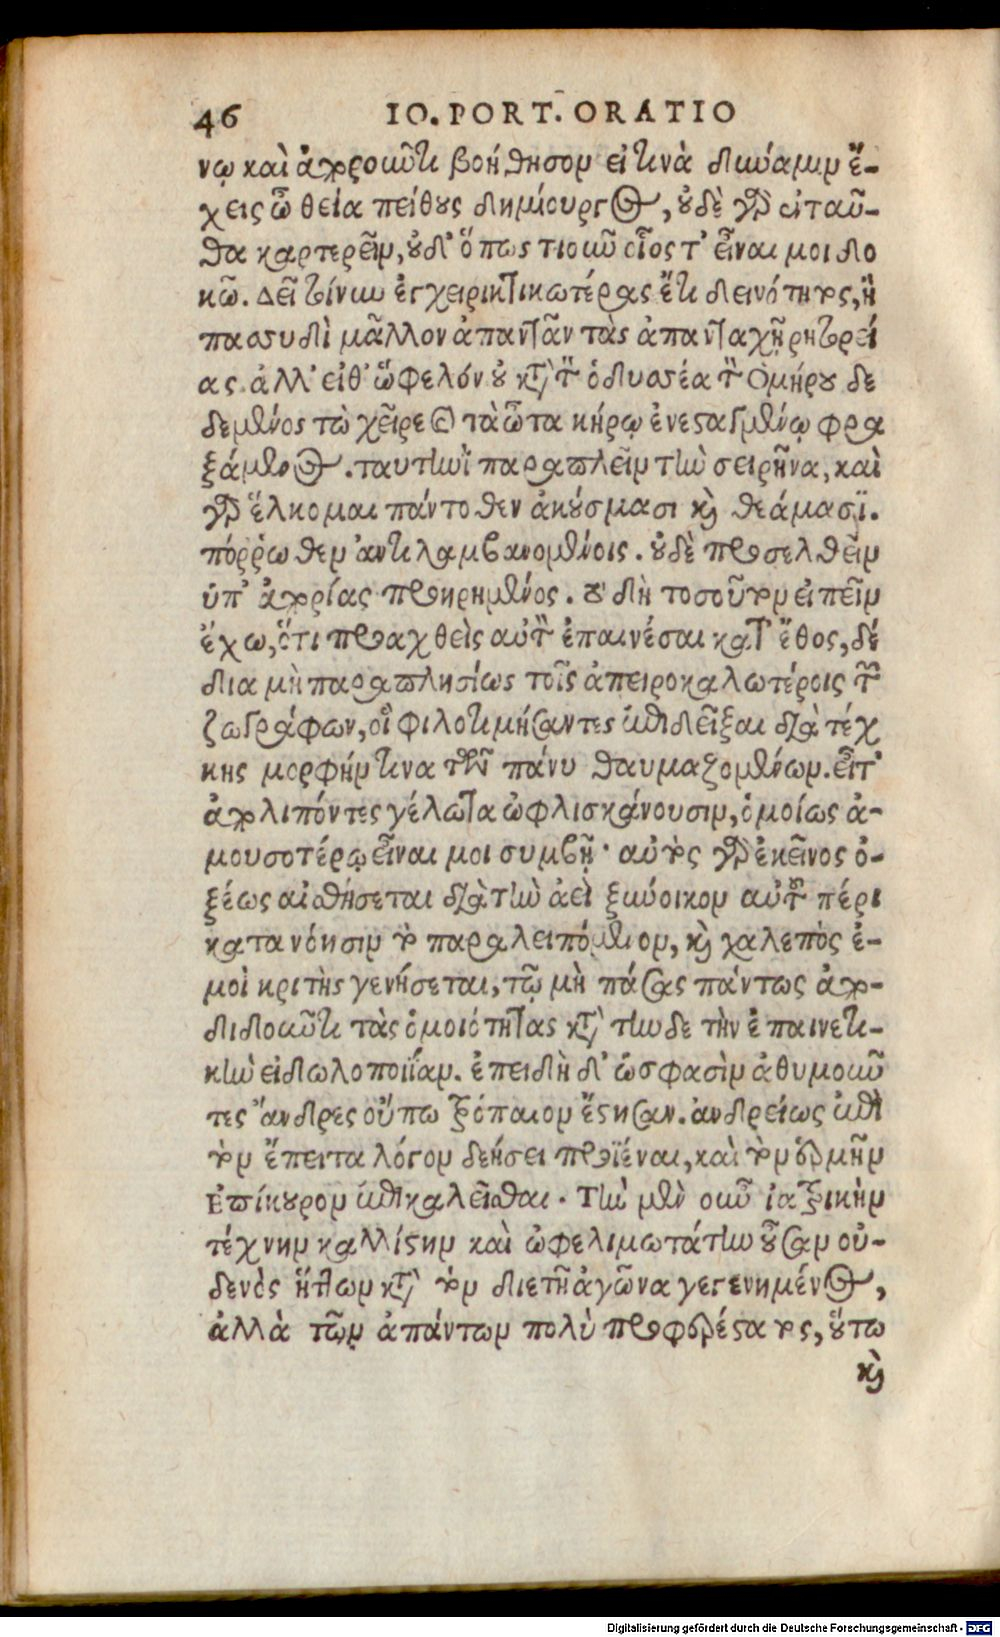 46 IO. PORT. ORATIO
νῳ καὶ ἀπροσκοῦντι βοήθησον εἰ τινὰ δύναμιν ἔ-
χεις ὦ θεία πείθους δημίουργος, οὐδὲ γὰρ ἐνταῦ-
θα καρτερεῖν, οὐδ' ὅπως τιοῦν οἷος τ' εἶναι μοι δο
κῶ. Δεῖ τίνων ἐγχειρητικωτέρας ἔτι δεινότητος, ἢ
πασσυδὶ μᾶλλον ἁπαντᾶν τὰς ἁπανταχῆ
ας. ἀλλ' εἰθ' ὤφελόν οὐ κατὰ τὸν ὀδυσσέα τὸν Ὁμήρου δε
δεμένος τὼ χεῖρε καὶ τὰ ὦτα κήρῳ ἐνεσταγμένῳ φρα
ξάμενος. ταυτηνὶ παραπλεῖν τὴν σειρῆνα, καὶ
γὰρ ἕλκομαι πάντοθεν ἀκούσμασι καὶ θεάμασϊ.
πόῤῥωθεν ἀντιλαμβανομένοις. οὐδὲ προσελθεῖν
ὑπ' ἀπορίας προῃρημένος. οὐ δὴ τοσοῦτον εἰπεῖν
ἔχω, ὅτι προαχθεὶς αὐτὸν ἐπαινέσαι κατ' ἔθος, δέ
δια μὴ παραπλησίως τοῖς ἀπειροκαλωτέροις τῶν
ζωγράφων, οἳ φιλοτιμήσαντες ἐπιδεῖξαι διὰ τέχ
νης μορφήν τινα τῶν πάνυ θαυμαζομένων. Εἶτ'
ἀπολιπόντες γέλωτα ὠφλισκάνουσιν, ὁμοίως ἀ-
μουσοτέρῳ εἶναι μοι συμβῇ· αὐτὸς γὰρ ἐκεῖνος ὀ-
ξέως αἰσθήσεται διὰ τὴν ἀεὶ ξύνοικον αὐτῷ πέρι
κατανόησιν τὸ παραλειπόμενον, καὶ χαλεπὸς ἐ-
μοὶ κριτὴς γενήσεται, τῷ μὴ πάσας πάντως ἀπο-
διδοῦντι τὰς ὁμοιότητας κατὰ τήνδε τὴν ἐπαινετι-
κὴν εἰδωλοποιΐαν. ἐπειδὴ δ' ὥς φασὶν ἀθυμοῦν
τες ἄνδρες οὔπω τρόπαιον ἔστησαν. ἀνδρείως ἐπὶ
τὸν ἔπειτα λόγον δεήσει προϊέναι, καὶ τὸν ἑρμῆν
Ἐπίκουρον ἐπικαλεῖσθαι. Τὴν μὲν οὖν ἰατρικὴν
τέχνην καλλίστην καὶ ὠφελιμωτάτην οὖσαν οὐ-
δενὸς ἥττων κατὰ τὸν διετῆ ἀγῶνα γεγενημένος,
ἀλλὰ τῶν ἁπάντων πολὺ προφερέστατος, οὕτω
καὶ
Digitalisierung gefördert durch die Deutsche Forschungsgemeinschaft - DFG